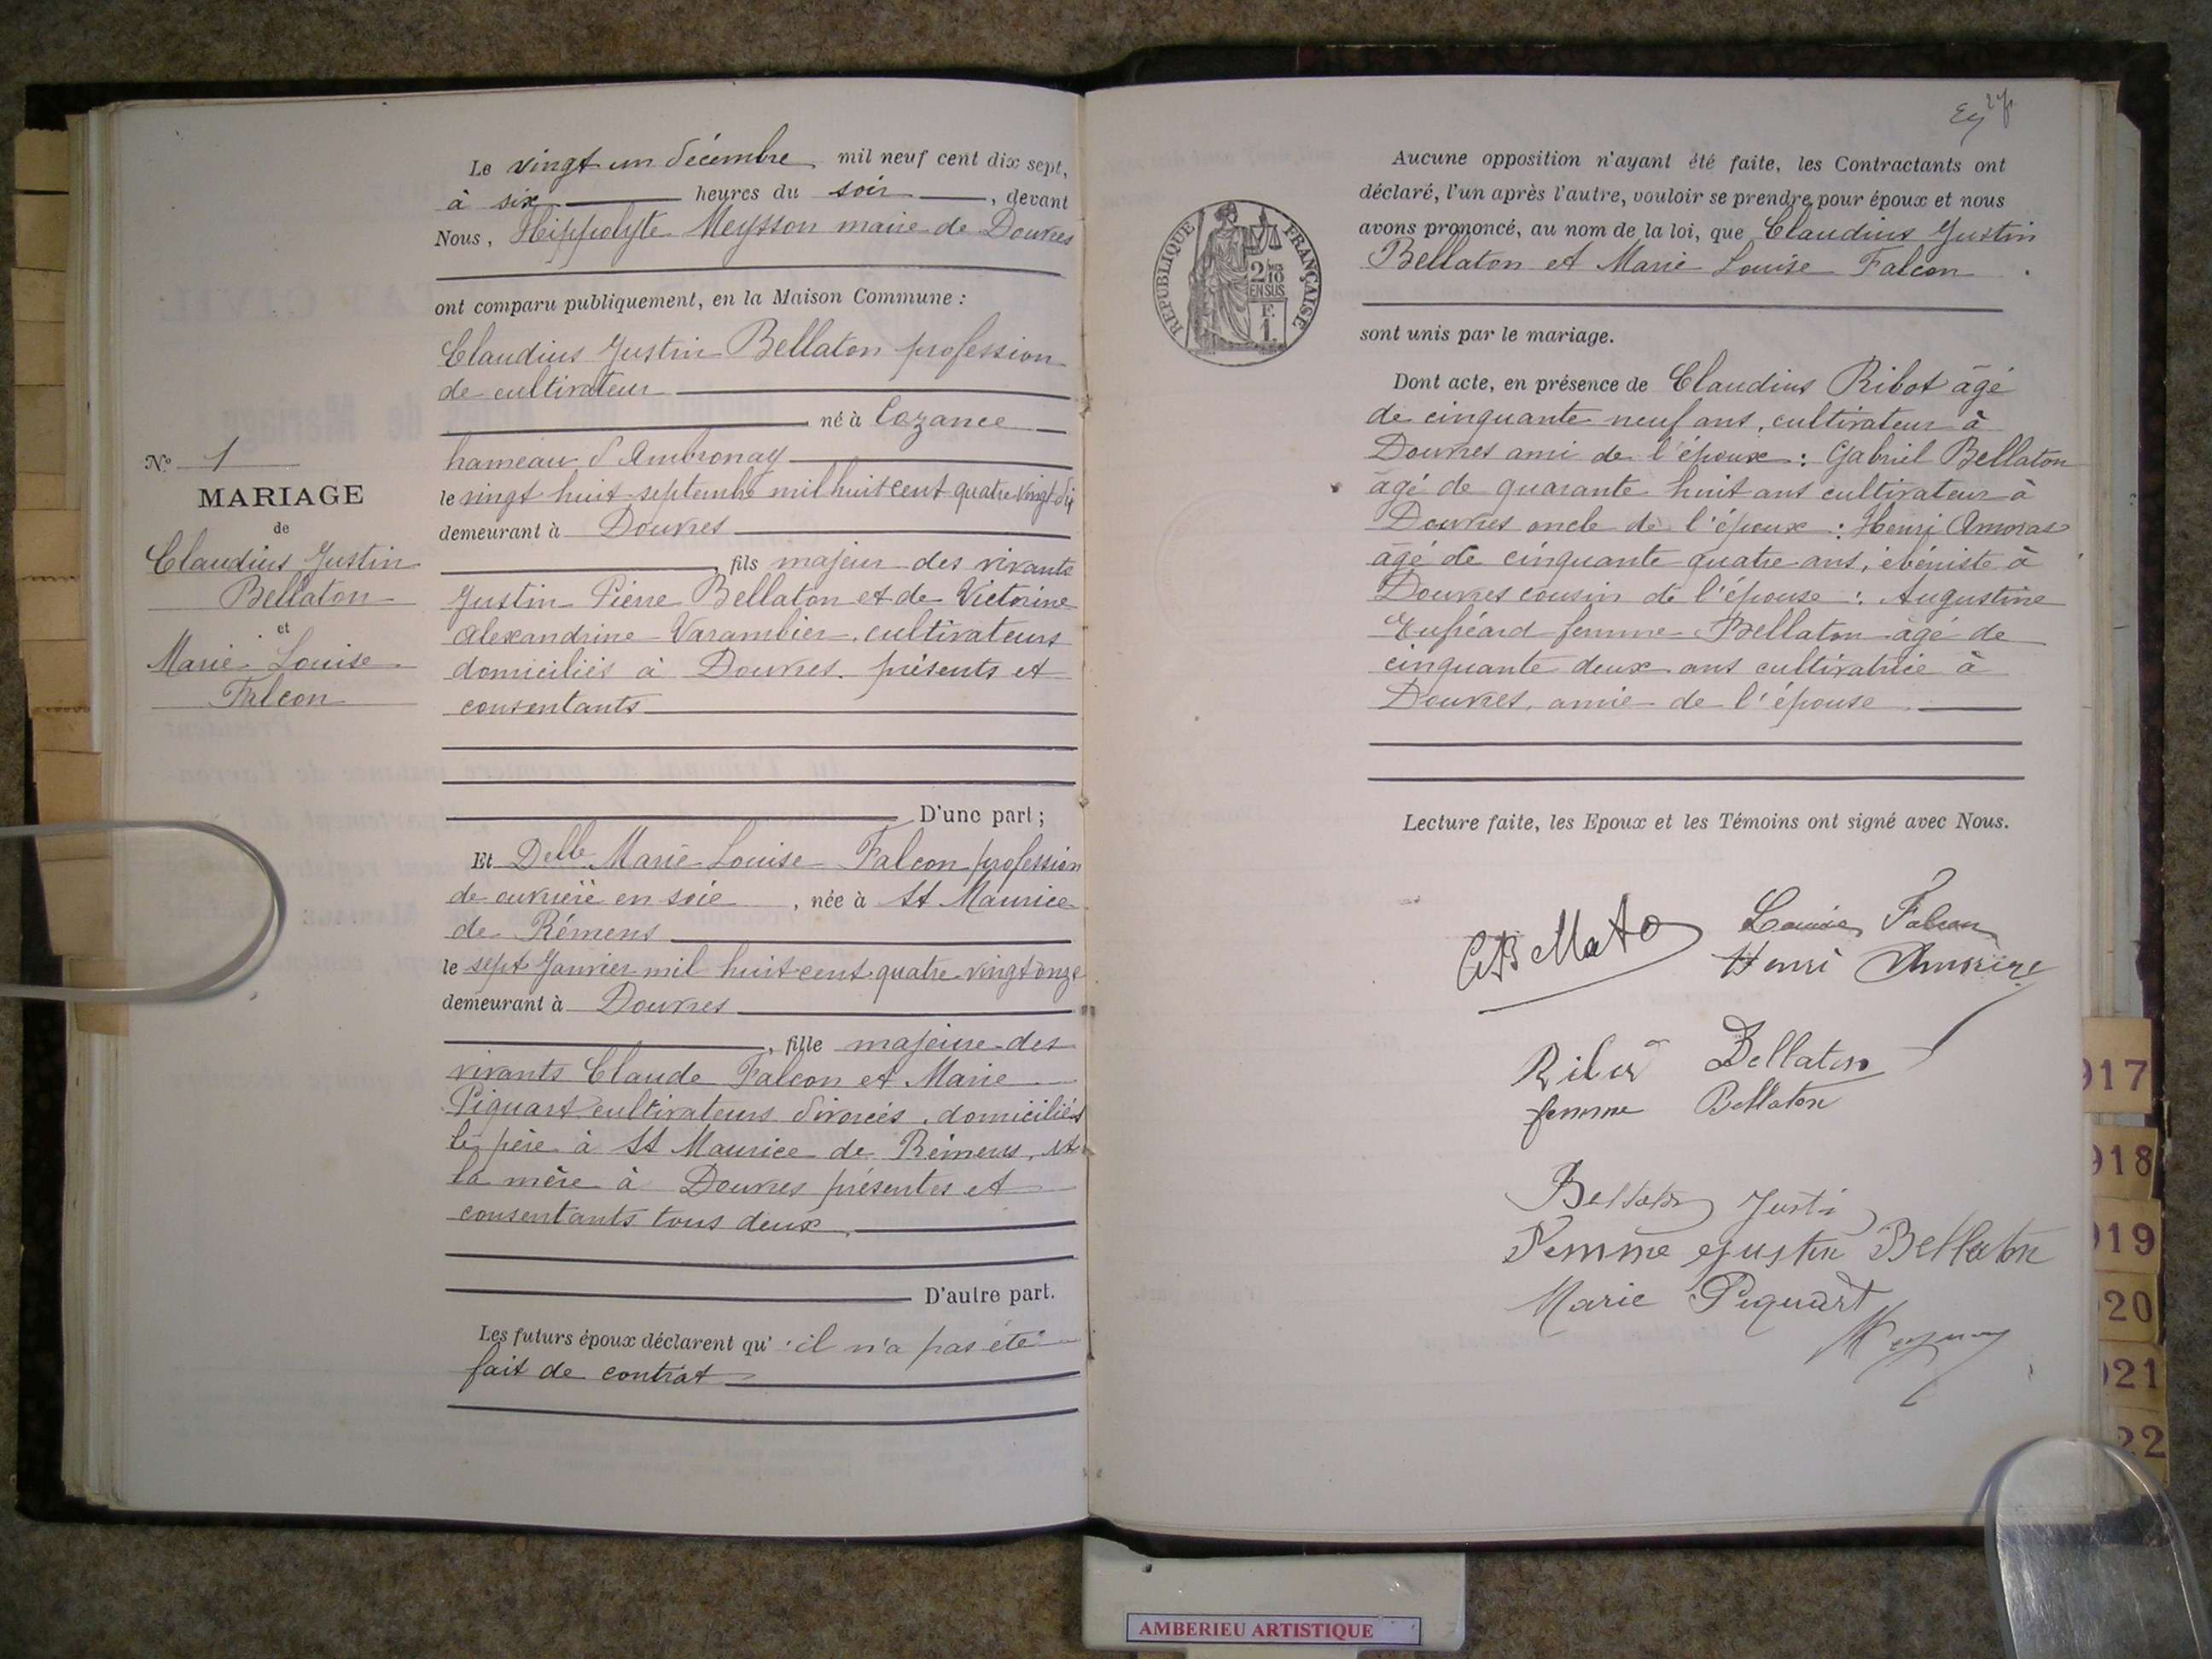 N° 1
MARIAGE
de
Claudius Justin
Bellaton
et
Marie Louise
Falcon
Le vingt un décembre mil neuf cent dix sept,
à six heures du soir, devant
Nous, Hippolyte Meysson maire de Douvres
ont comparu publiquement, en la Maison Commune :
Claudius Justin Bellaton profession
de cultivateur
né à Cozance
hameau d'Ambronay
le vingt huit septembre mil huit cent quatre vingt dix
demeurant à Douvres
, fils majeur des vivants
Justin Pierre Bellaton et de Victorine
Alexandrine Varambier, cultivateurs
domiciliés à Douvres. présents et
consentants
D'une part ;
Et Delle Marie Louise Falcon profession
de ouvrière en soie, née à St Maurice
de Rémens
le sept Janvier mil huit cent quatre vingt onze
demeurant à Douvres
, fille majeure des
vivants Claude Falcon et Marie
Piquart cultivateurs divorcés, domiciliés
le père à St Maurice de Rémens, et
la mère à Douvres présentes et
consentants tous deux.
D'autre part.
Les futurs époux déclarent qu'il n'a pas été
fait de contrat
REPUBLIQUE FRANÇAISE
2/10
EN SUS
F.
1.
Aucune opposition n'ayant été faite, les Contractants ont
déclaré, l'un après l'autre, vouloir se prendre pour époux et nous
avons prononcé, au nom de la loi, que Claudius Justin
Bellaton et Marie Louise Falcon
sont unis par le mariage.
Dont acte, en présence de Claudius Ribot âgé
de cinquante neuf ans, cultivateur à
Douvres ami de l'époux : Gabriel Bellaton
âgé de quarante huit ans cultivateur à
Douvres oncle de l'époux : Henri Amoras
âgé de cinquante quatre ans, ébéniste à
Douvres cousin de l'épouse : Augustine
femme Bellaton âgé de
cinquante deux ans cultivatrice à
Douvres, amie de l'épouse
Lecture faite, les Epoux et les Témoins ont signé avec Nous.
Louise Falcon
Henri
Bellaton
femme Bellaton
Bellaton Justi
Femme Justin Bellaton
Marie Piquart
917
918
919
20
21
22
AMBERIEU ARTISTIQUE